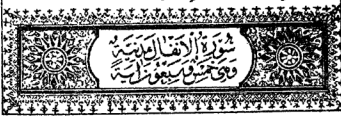 سورة الانفال مدنية
وهي خمس وسبعون اية